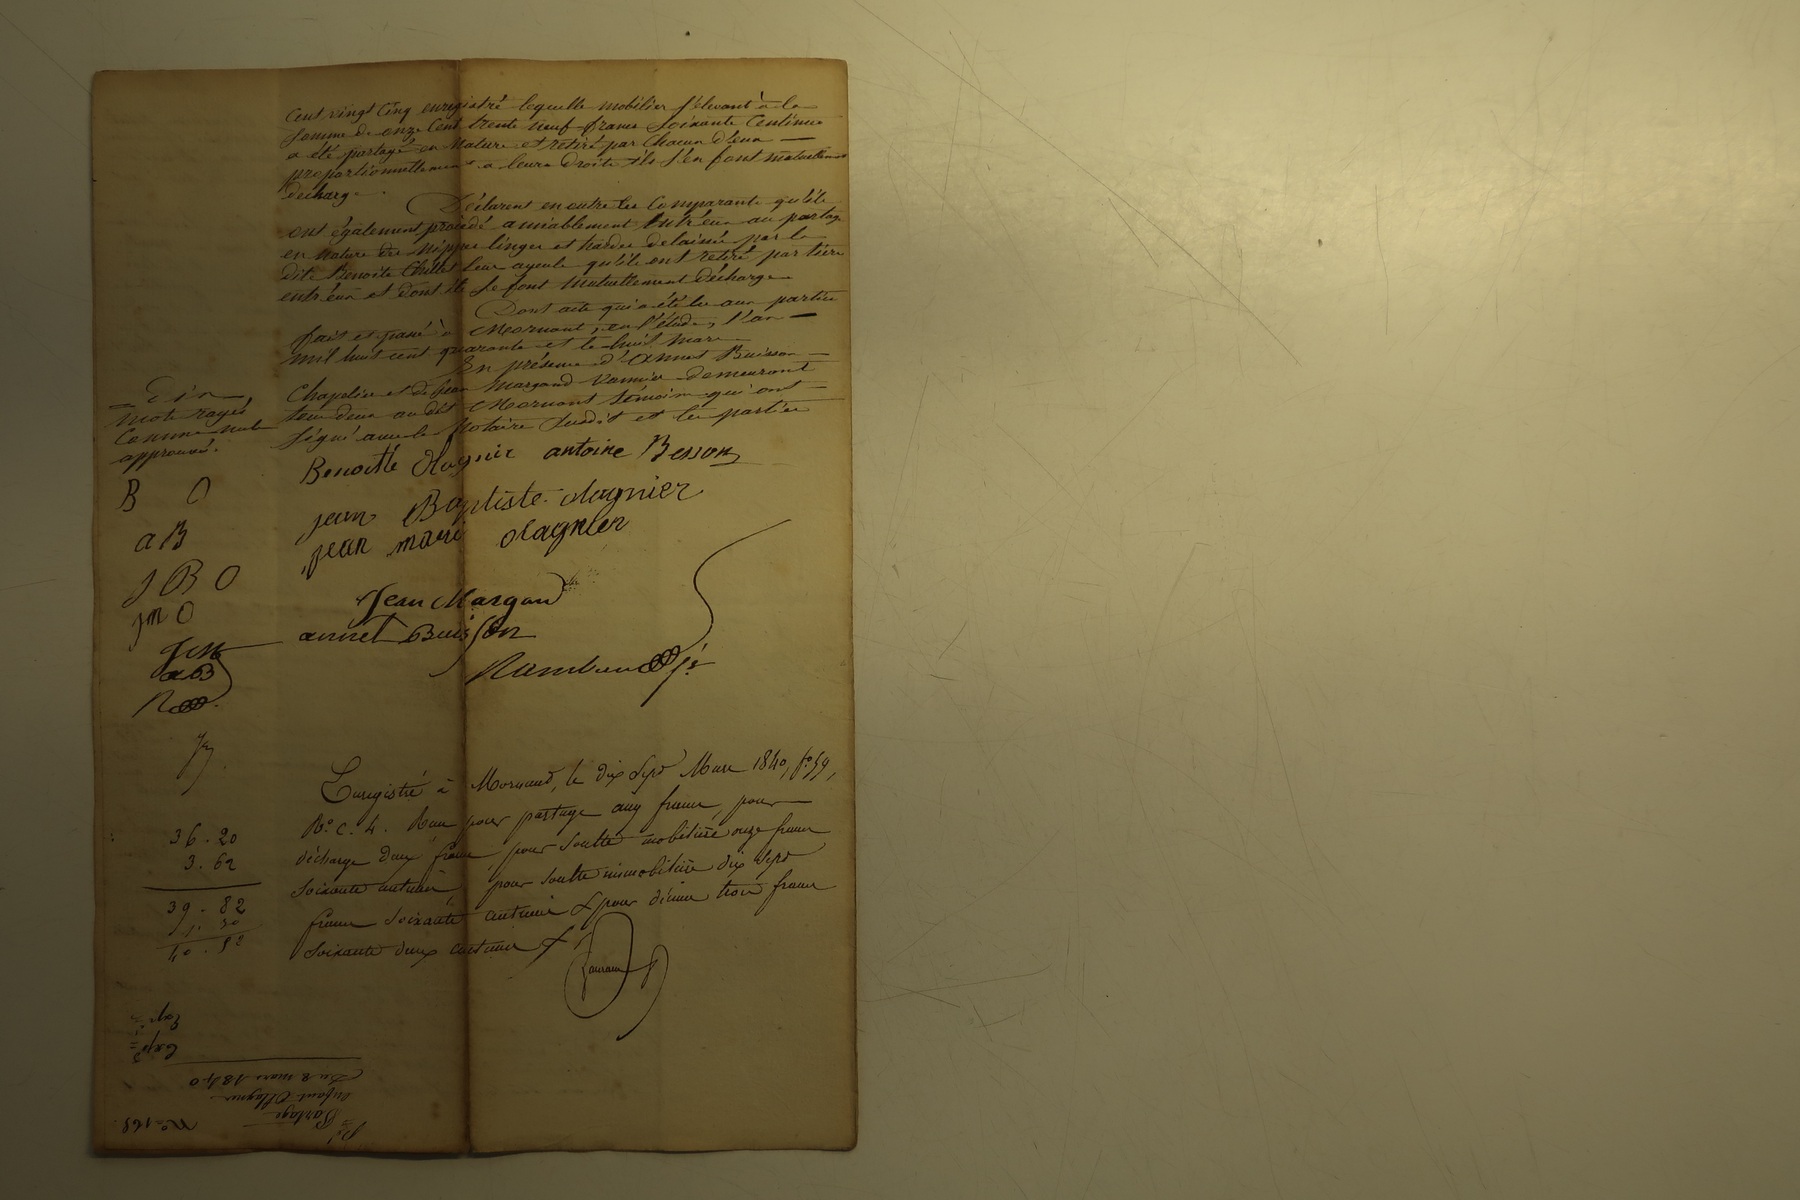 Cent vingt Cinq enregistré lequelle mobilier s'élevant à la
Somme de onze Cent trente neuf francs Soixante Centimes
a été partagé en Nature et retiré par Chacun d'eux —
proportionnellement a leurs droits ils s'en font mutuellement
décharge.
Déclarent en outre les Comparants qu'ils
ont également procédé amiablement Entr'eux au partage
en nature des Nippes linges et hardes delaissés par la
dite Benoite leur ayeule qu'ils ont retiré par tiers
entr'eux et dont ils Se font Mutuellement décharge
Dont acte qui a été lu aux parties
fait et passé à Mornant, en l'étude, l'an —
mil huit cent quarante et le huit Mars
En présence d'Annet Buisson —
Chapelier et de Jean Margand Vannier demeurant
tous deux au dit Mornant témoins qui ont —
Signé avec le Notaire Susdit et les parties
= Dix =
mots rayés
Comme nuls
approuvés.
Benoitte Olagnier antoine Besson
jean Baptiste olagnier
jean marie olagnier
Jean Margand
annet Buisson
B O
a B
J B O
J M O
J M
a B
R
Enregistré à Mornant, le dix Sept Mars 1840, f° 59,
R° C. 4. Reçu pour partage cinq francs, pour —
décharge deux francs pour soulte mobilière onze francs
Soixante centimes, pour soulte immobilière dix Sept
francs Soixante centimes & pour décime trois francs
Soixante deux centimes
36.20
3.62
39.82
N° 168.
Partage
enfants Olagnier
Du 8 mars 1840
Expé
Expé